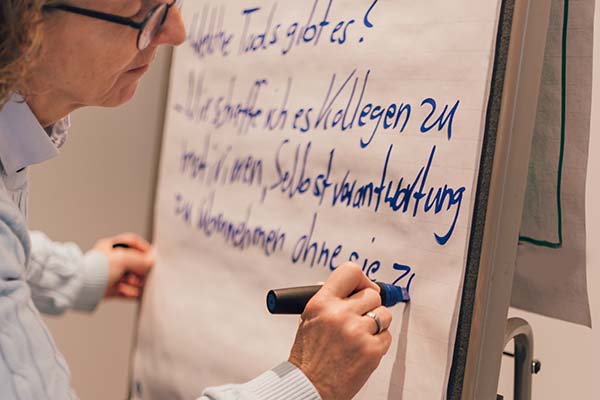 Welche Tools gibt es?
Wie schaffe ich es Kollegen zu
motivieren, Selbstverantwortung
zu übernehmen ohne sie zu